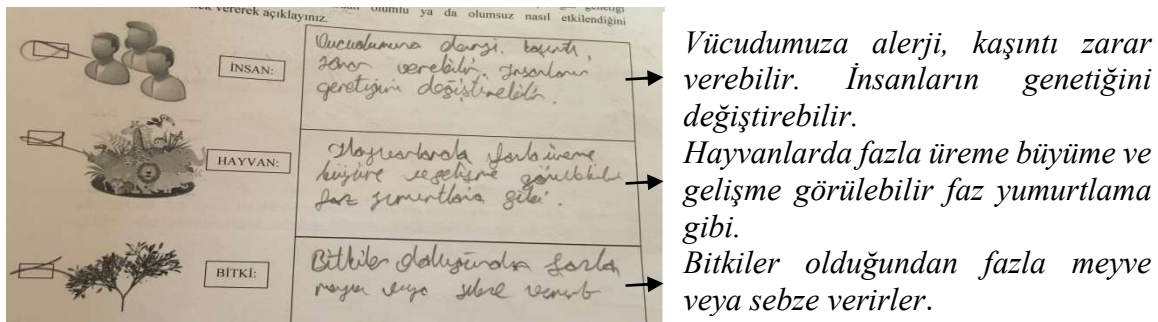 olumlu ya da olumsuz nasıl etkilendiğini
vererek açıklayınız.
İNSAN:
Vucudumuza alerji, kaşıntı,
zarar verebilir. İnsanların
genetiğini değiştirebilir.
HAYVAN:
Hayvanlarda fazla üreme
büyüme ve gelişme görülebilir
faz yumurtlama gibi.
BİTKİ:
Bitkiler olduğundan fazla
meyve veya sebze verirler
Vücudumuza alerji, kaşıntı zarar
verebilir. İnsanların genetiğini
değiştirebilir.
Hayvanlarda fazla üreme büyüme ve
gelişme görülebilir faz yumurtlama
gibi.
Bitkiler olduğundan fazla meyve
veya sebze verirler.